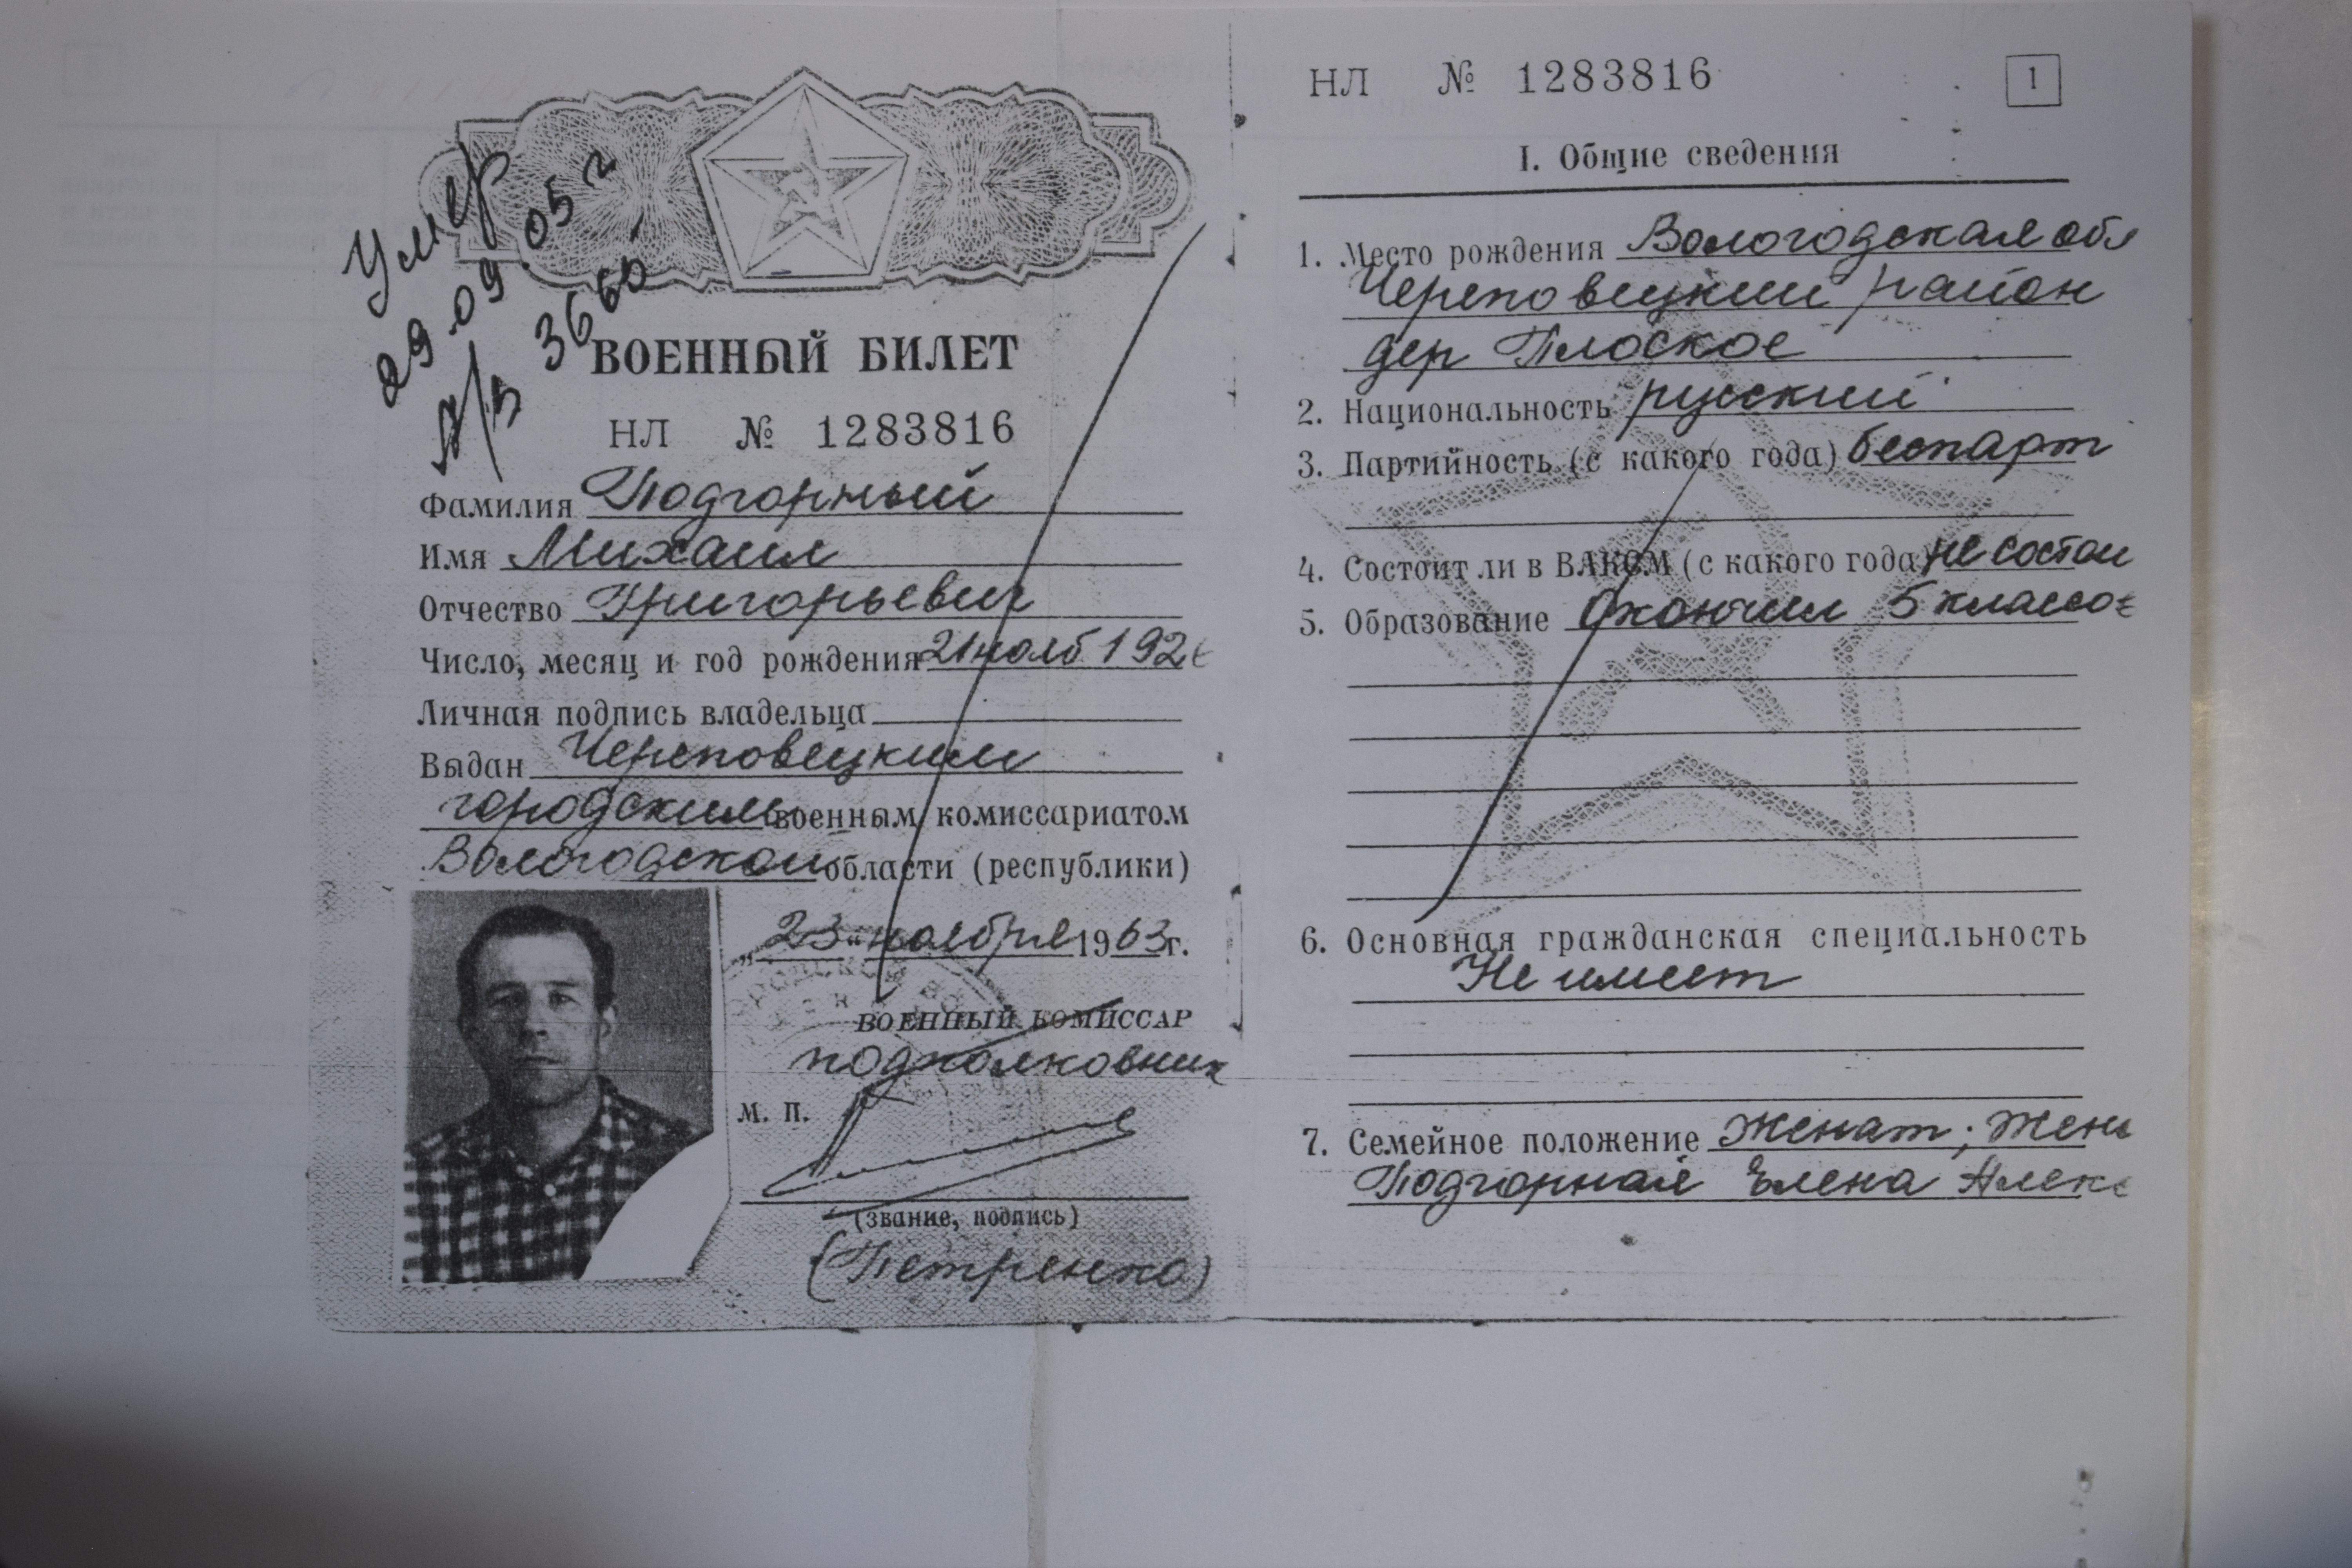 Умер
29.09.05 г
А/В 3665
ВОЕННЫЙ БИЛЕТ
НЛ № 1283816
Фамилия Подгорный
Имя Михаил
Отчество Григорьевич
Число, месяц и год рождения 21 нояб 192
Личная подпись владельца
Выдан Череповецким
городским военным комиссариатом
Вологодской области (республики)
„23“ ноября 1963 г.
ВОЕННЫЙ КОМИССАР
подполковник
М. П.
(звание, подпись)
(Петренко)
НЛ № 1283816
1
I. Общие сведения
1. Место рождения Вологодская обл
Череповецкий район
дер Плоское
2. Национальность русский
3. Партийность (с какого года) беспарт
4. Состоит ли в ВЛКСМ (с какого года) не состои
5. Образование Окончил 5 классо
6. Основная гражданская специальность
Не имеет
7. Семейное положение Женат; жен
Подгорная Елена Алекс